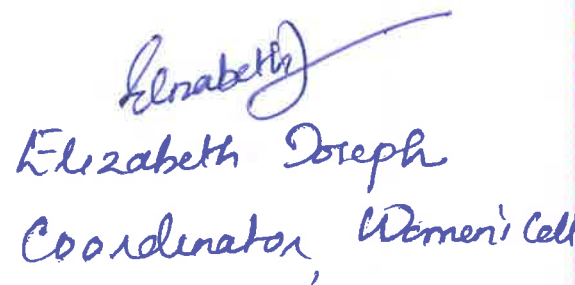 Elizabeth
Elizabeth Joseph
Coordinator, Women's Cell